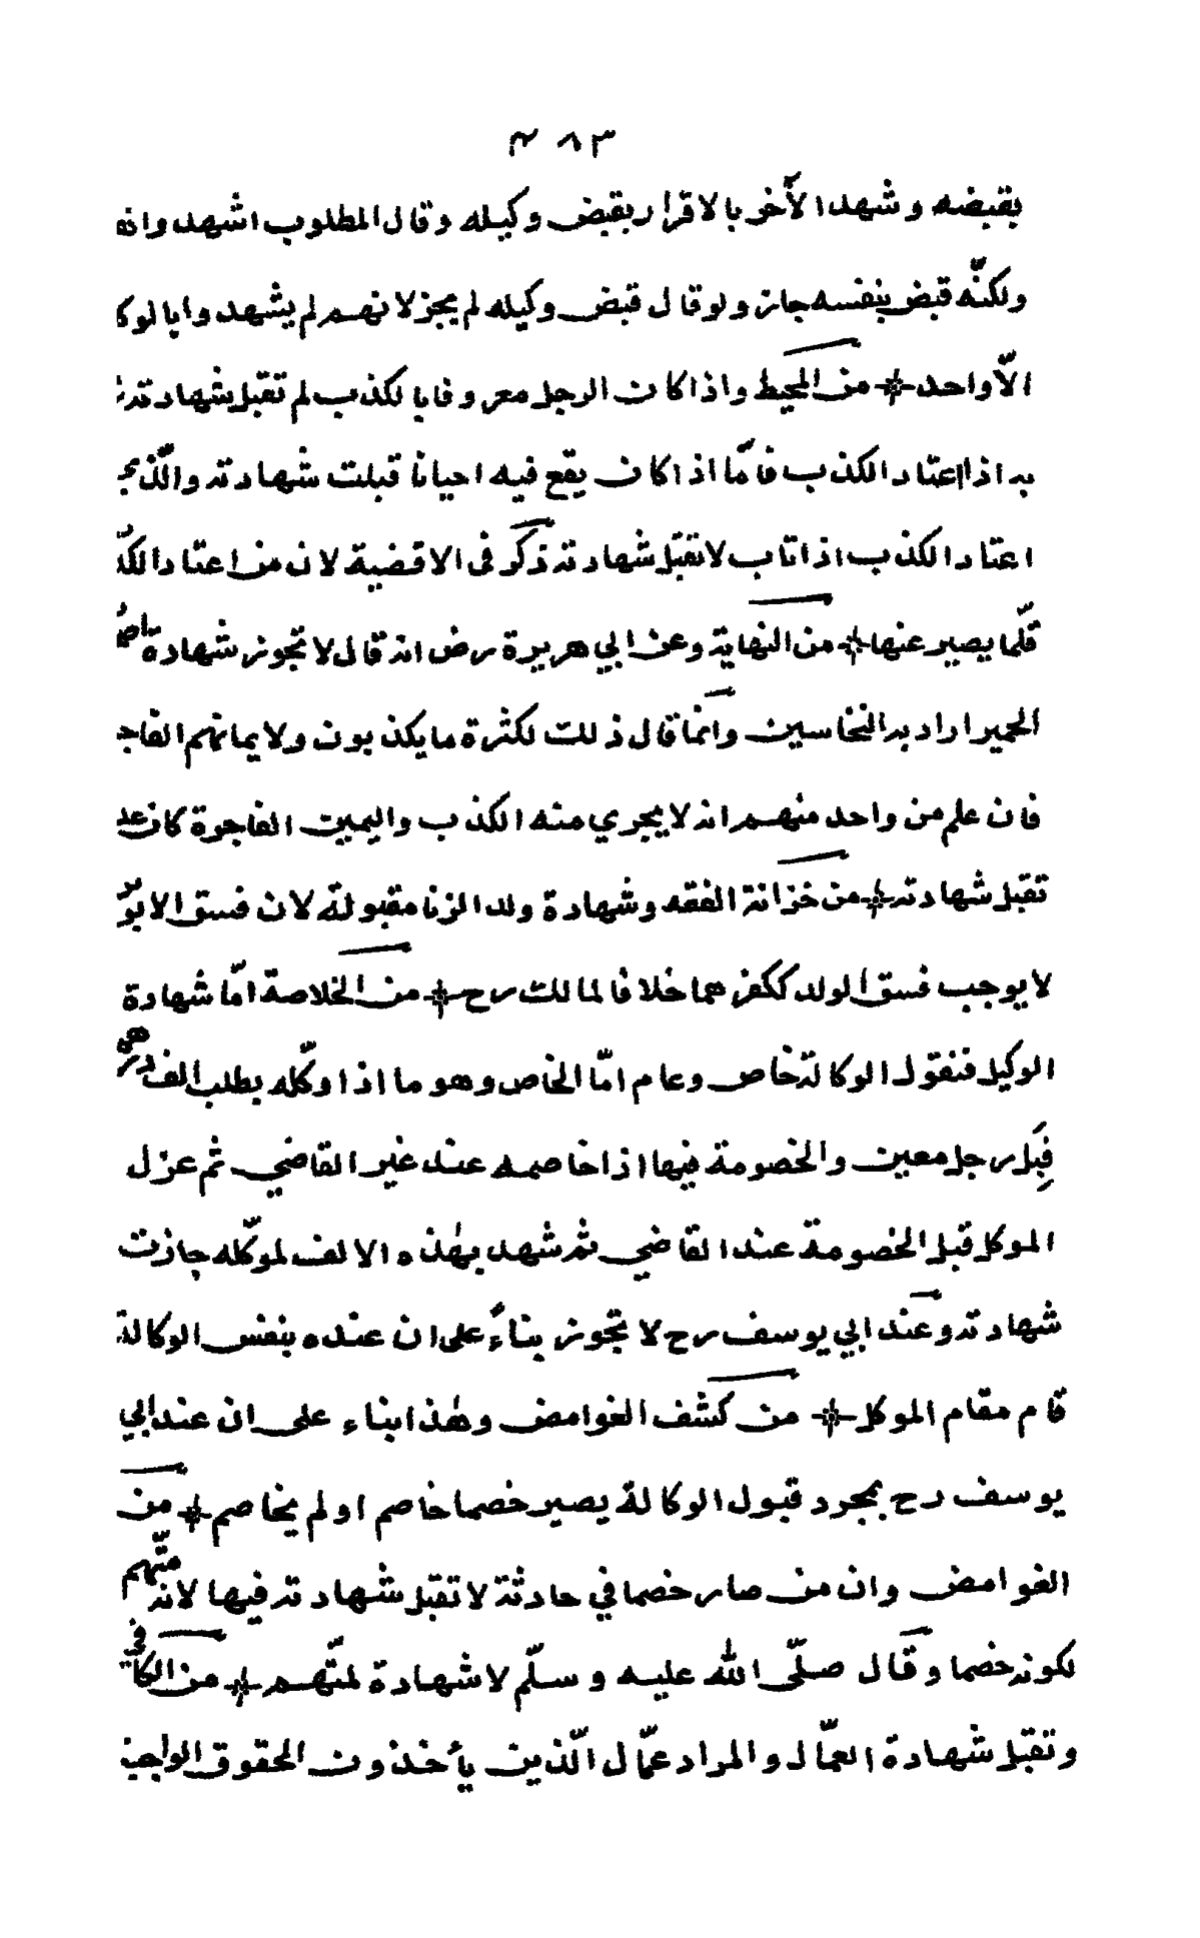 ٤٨٣
يقبضه وشهد الأخر بالاقرار بقبض وكيله وقال المطلوب اشهدوا انه
ولكنّه قبض بنفسه جاز ولو قال قبض وكيله لم يجز لانهم لم يشهدوا بالوكا
الّا واحد من المحيط واذا كان الرجل معروفا بالكذب لم تقبل شهادته
به اذا اعتاد الكذب فامّا اذا كان يقع فيه احيانا قبلت شهادته والّذي
اعتاد الكذب اذا تاب لا تقبل شهادته ذكر فى الاقضية لان من اعتاد الكذ
قلّما يصير عنها من النهاية وعن ابي هريرة رض انه قال لا تجوز شهادة اصحاب
الحمير اراد به النخاسين وانما قال ذلك لكثرة ما يكذبون ولايمانهم الفاجـ
فان علم من واحد منهم انه لا يجري منه الكذب واليمين الفاجرة كان عد
تقبل شهادته من خزانة الفقه وشهادة ولد الزنا مقبولة لان فسق الابوين
لا يوجب فسق الولد ككفرهما خلافا لمالك رح من الخلاصة امّا شهادة
الوكيل فنقول الوكالة خاص وعام امّا الخاص وهو ما اذا وكّله بطلب الف درهم
قِبَل رجل معين والخصومة فيها اذا خاصمه عند غير القاضي ثم عزل
الموكل قبل الخصومة عند القاضي ثم شهد بهٰذه الالف لموكّله جازت
شهادته وعند ابي يوسف رح لا تجوز بناءً على ان عنده بنفس الوكالة
قام مقام الموكل من كشف الغوامض وهٰذا بناء على ان عند ابي
يوسف رح بمجرد قبول الوكالة يصير خصما خاصم او لم يخاصم من
الغوامض وان من صار خصما في حادثة لا تقبل شهادته فيها لانه متّهم
لكونه خصما وقال صلّى الله عليه وسلّم لا شهادة لمتّهم من الكافي
وتقبل شهادة العمّال والمراد عمّال الّذين يأخذون الحقوق الواجبة